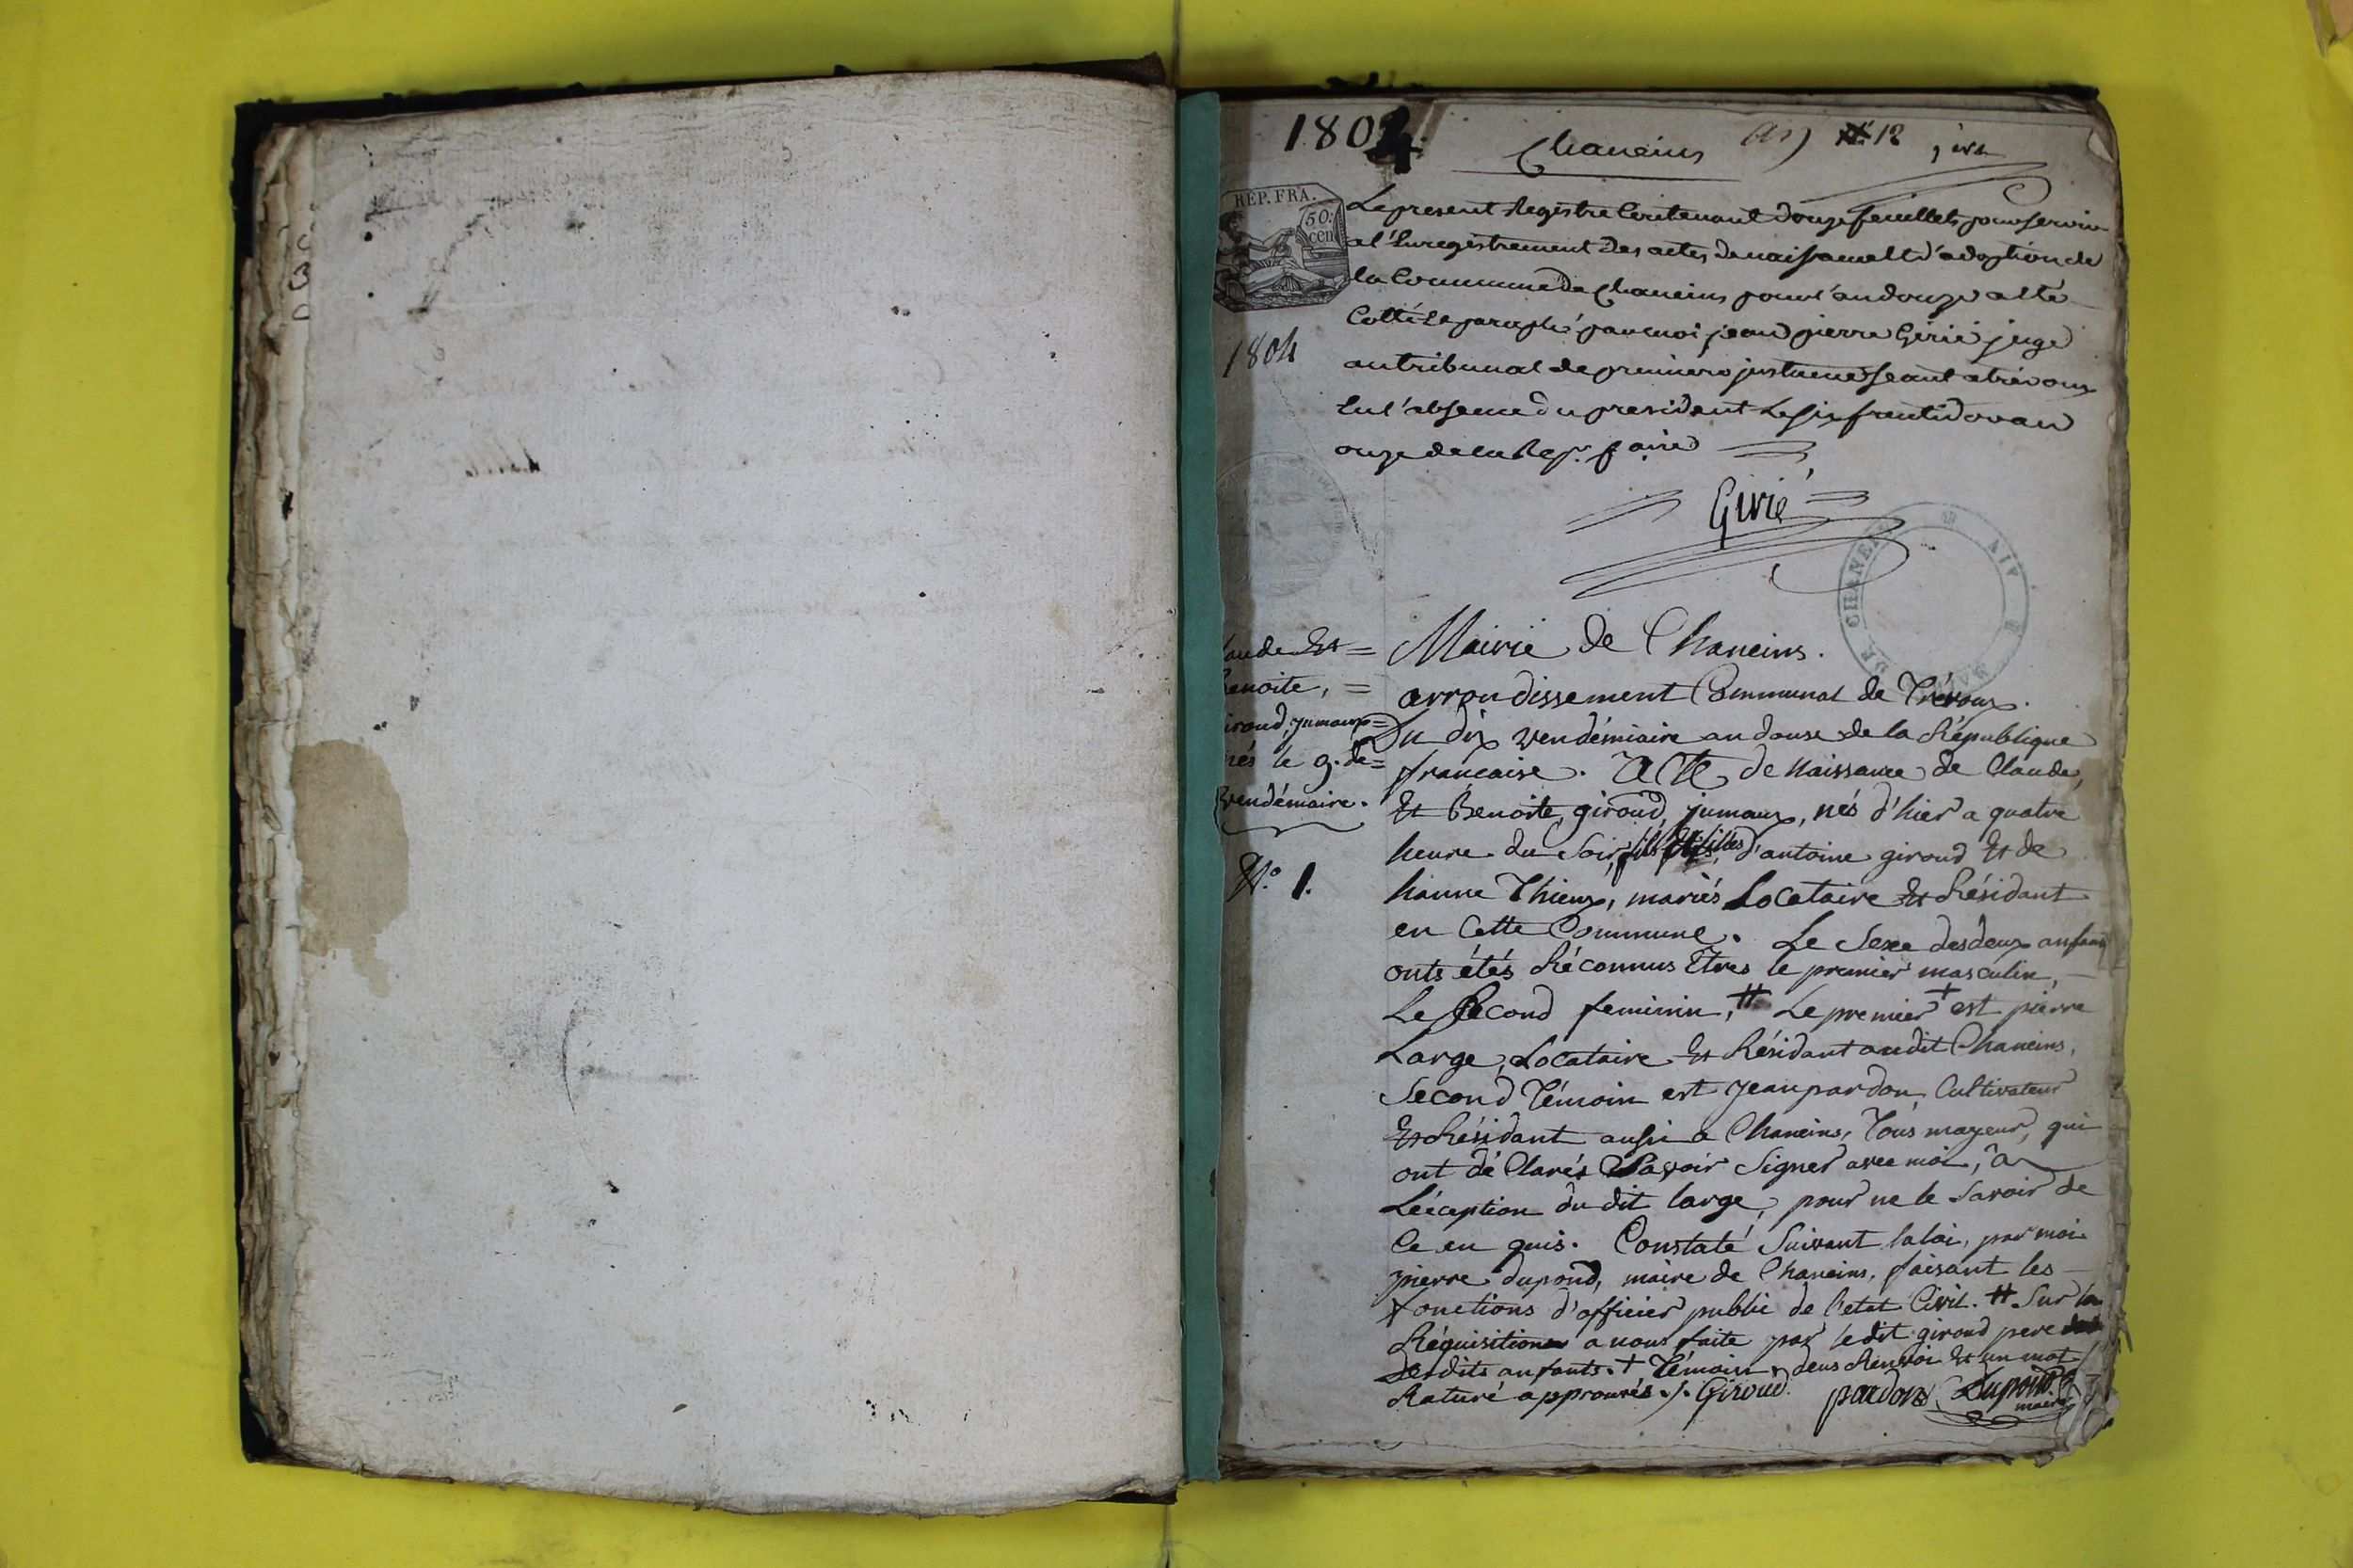 1804
Chaneins an 12
REP. FRA.
50.
cen
Le present Registre Contenant douze feuillets pour servir
a l'Enregistrement des actes de naissance et d'adoption de
la Commune de Chaneins pour l'an douze a été
Cotté et paraphé par moi jean pierre Girié juge
au tribunal de premiere instance seant a trevoux
En l'absence du president Le six fructidor an
onze de la Rep. f
1804
Girié
Mairie de Chaneins.
arrondissement Communal de Trévoux.
aude Et =
enoite, =
iroud, jumaux =
nés le 9. de =
vendémiaire.
N.o 1.
Du dix vendémiaire an douse de la République
française. Acte de Naissance de Claude,
Et Benoite, giroud, jumaux, nés d'hier a quatre
heure du Soir, fils Et filles d'antoine giroud Et de
hanne Thieux, mariés Locataire Et Résidant
en Cette Commune. Le Sexe des deux anfans
onts étés Réconnus Etres le premier masculin,
Le Second feminin, # Le premier + est pierre
Large, Locataire Et Résidant audit Chaneins,
Second Témoin est Jean pardon, Cultivateur
Et Résidant aussi a Chaneins, Tous mayeur, qui
ont dé Clarés Savoir Signer avec moi, a
Léception du dit large, pour ne le Savoir de
Ce en quis. Constaté Suivant la loi, par moi
pierre dupond, maire de Chaneins, faisant les
fonctions d'officier public de l'etat Civil. # Sur la
Réquisition a nous faite par le dit giroud pere
Desdits anfants. + Témoin, deus Renvoi Et un mot
Raturé approuvés ./. Giroud. pardon Dupond
maire